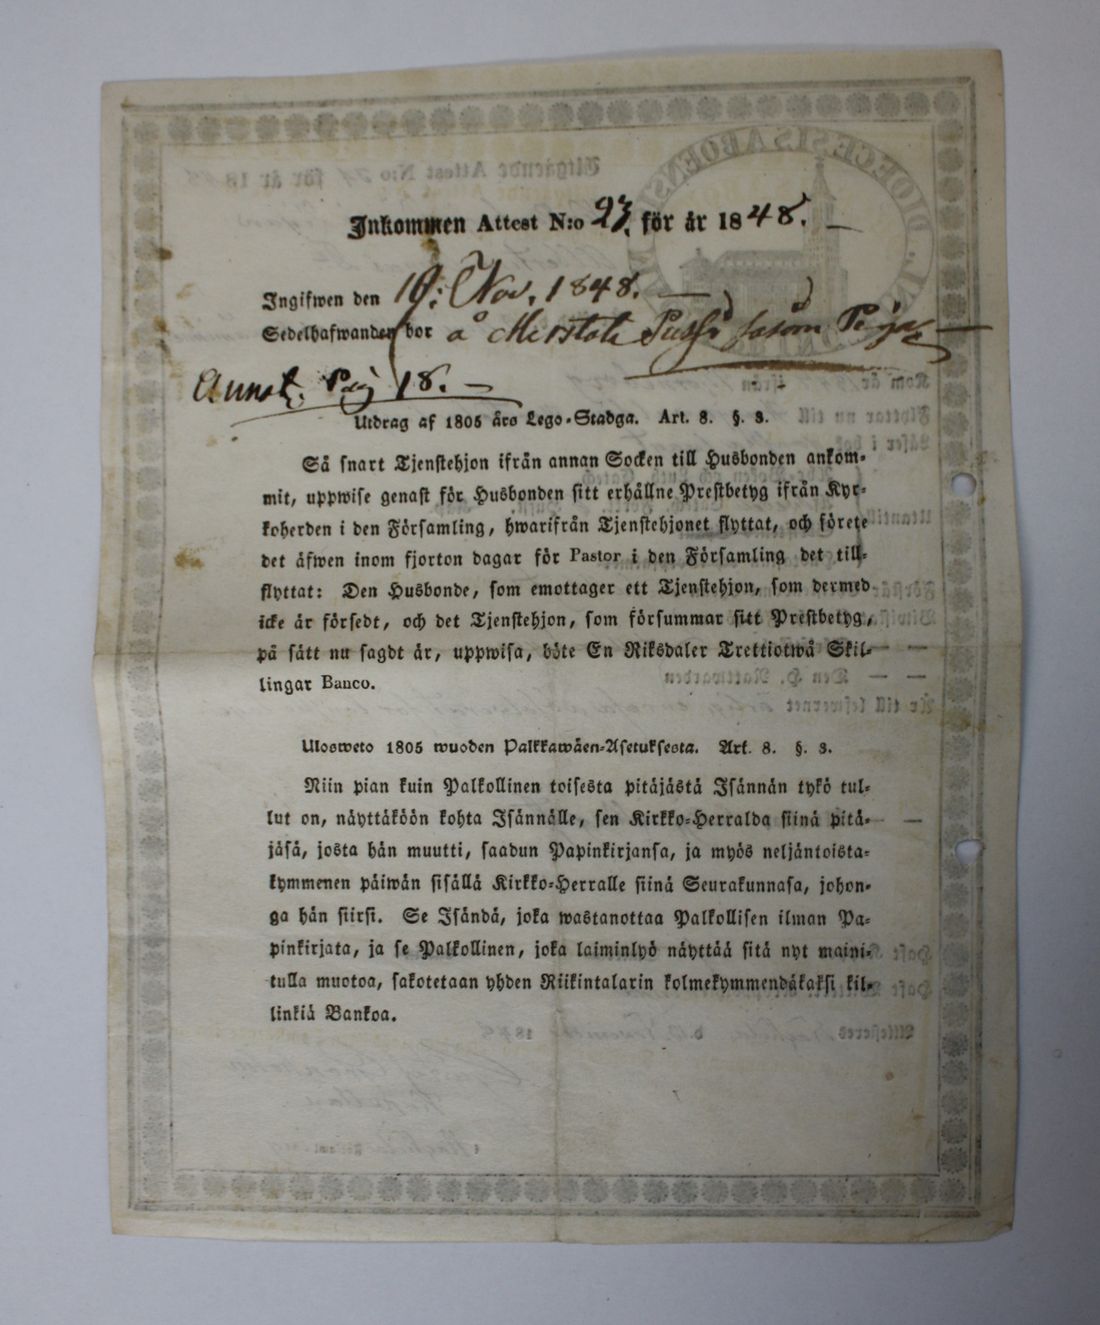 Inkommen Attest N:o 23. för år 1848.
Ingifwen den 10: Nov. 1848.
Sedelhafwanden bor å såsom Piga
Annot. Pag 18.
Utdrag af 1805 års Lego-Stadga. Art. 8. §. 3.
Så snart Tjenstehjon ifrån annan Socken till Husbonden ankom-
mit, uppwise genast för Husbonden sitt erhållne Prestbetyg ifrån Kyr-
koherden i den Församling, hwarifrån Tjenstehjonet flyttat, och förete
det äfwen inom fjorton dagar för Pastor i den Församling det till-
flyttat: Den Husbonde, som emottager ett Tjenstehjon, som dermed
icke är försedt, och det Tjenstehjon, som försummar sitt Prestbetyg,
på sätt nu sagdt är, uppwisa, böte En Riksdaler Trettiotwå Skil-
lingar Banco.
Ulosweto 1805 wuoden Palkkawäen-Asetuksesta. Art. 8. §. 3.
Niin pian kuin Palkollinen toisesta pitäjästä Isännän tykö tul-
lut on, näyttäköön kohta Isännälle, sen Kirkko-Herralda siinä pitä-
jäsä, josta hän muutti, saadun Papinkirjansa, ja myös neljäntoista-
kymmenen päiwän sisällä Kirkko-Herralle siinä Seurakunnasa, johon-
ga hän siirsi. Se Isändä, joka wastanottaa Palkollisen ilman Pa-
pinkirjata, ja se Palkollinen, joka laiminlyö näyttää sitä nyt maini-
tulla muotoa, sakotetaan yhden Riikintalarin kolmekymmendäkaksi kil-
linkiä Bankoa.